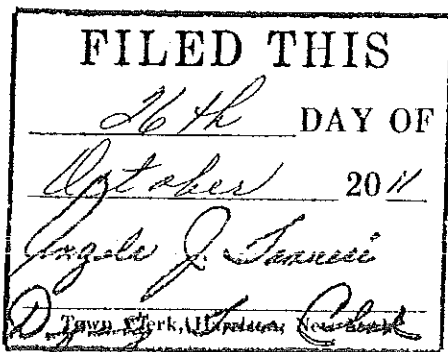 FILED THIS
26th DAY OF
October 2011
J.
Deputy Town Clerk
Town Clerk, Harrison, New York